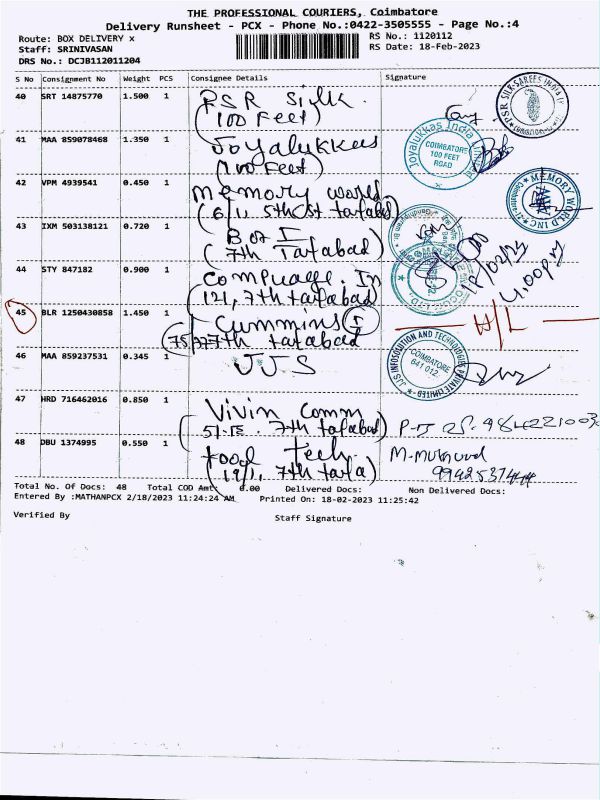 THE PROFESSIONAL COURIERS, Coimbatore
Delivery Runsheet - PCX - Phone No.:0422-3505555 - Page No.:4
Route: BOX DELIVERY x
RS No.: 1120112
Staff: SRINIVASAN
RS Date: 18-Feb-2023
DRS No.: DCJB112011204
S No Consignment No Weight PCS Consignee Details Signature
40 SRT 14875770 1.500 1 PSR Silk.
(100 Feet)
PSR SILK SAREES INDIA
41 MAA 859078468 1.350 1 Joyalukkas
(100 Feet)
Joyalukkas India Limited
COIMBATORE
100 FEET
ROAD
42 VPM 4939541 0.450 1 Memory world
(6/11 5th St tatabd)
MEMORY WORLD INC
43 IXM 503138121 0.720 1 B of I
(7th Tatabad)
44 STY 847182 0.900 1 Compuage. In
(121, 7th tatabad)
18/02/23
4.00pm
45 BLR 1250430858 1.450 1 Cummins
7th tatabad
H/L
46 MAA 859237531 0.345 1 JJS
JJS INFOSOLUTION AND TECHNOLOGIES PRIVATE LIMITED
COIMBATORE
641 012
47 HRD 716462016 0.850 1 Vivin Comm
7th tatabad)
48 DBU 1374995 0.550 1 Food Tech
7th tata)
Total No. Of Docs: 48 Total COD Amt: 0.00 Delivered Docs: Non Delivered Docs:
Entered By :MATHANPCX 2/18/2023 11:24:24 AM Printed On: 18-02-2023 11:25:42
Verified By
Staff Signature